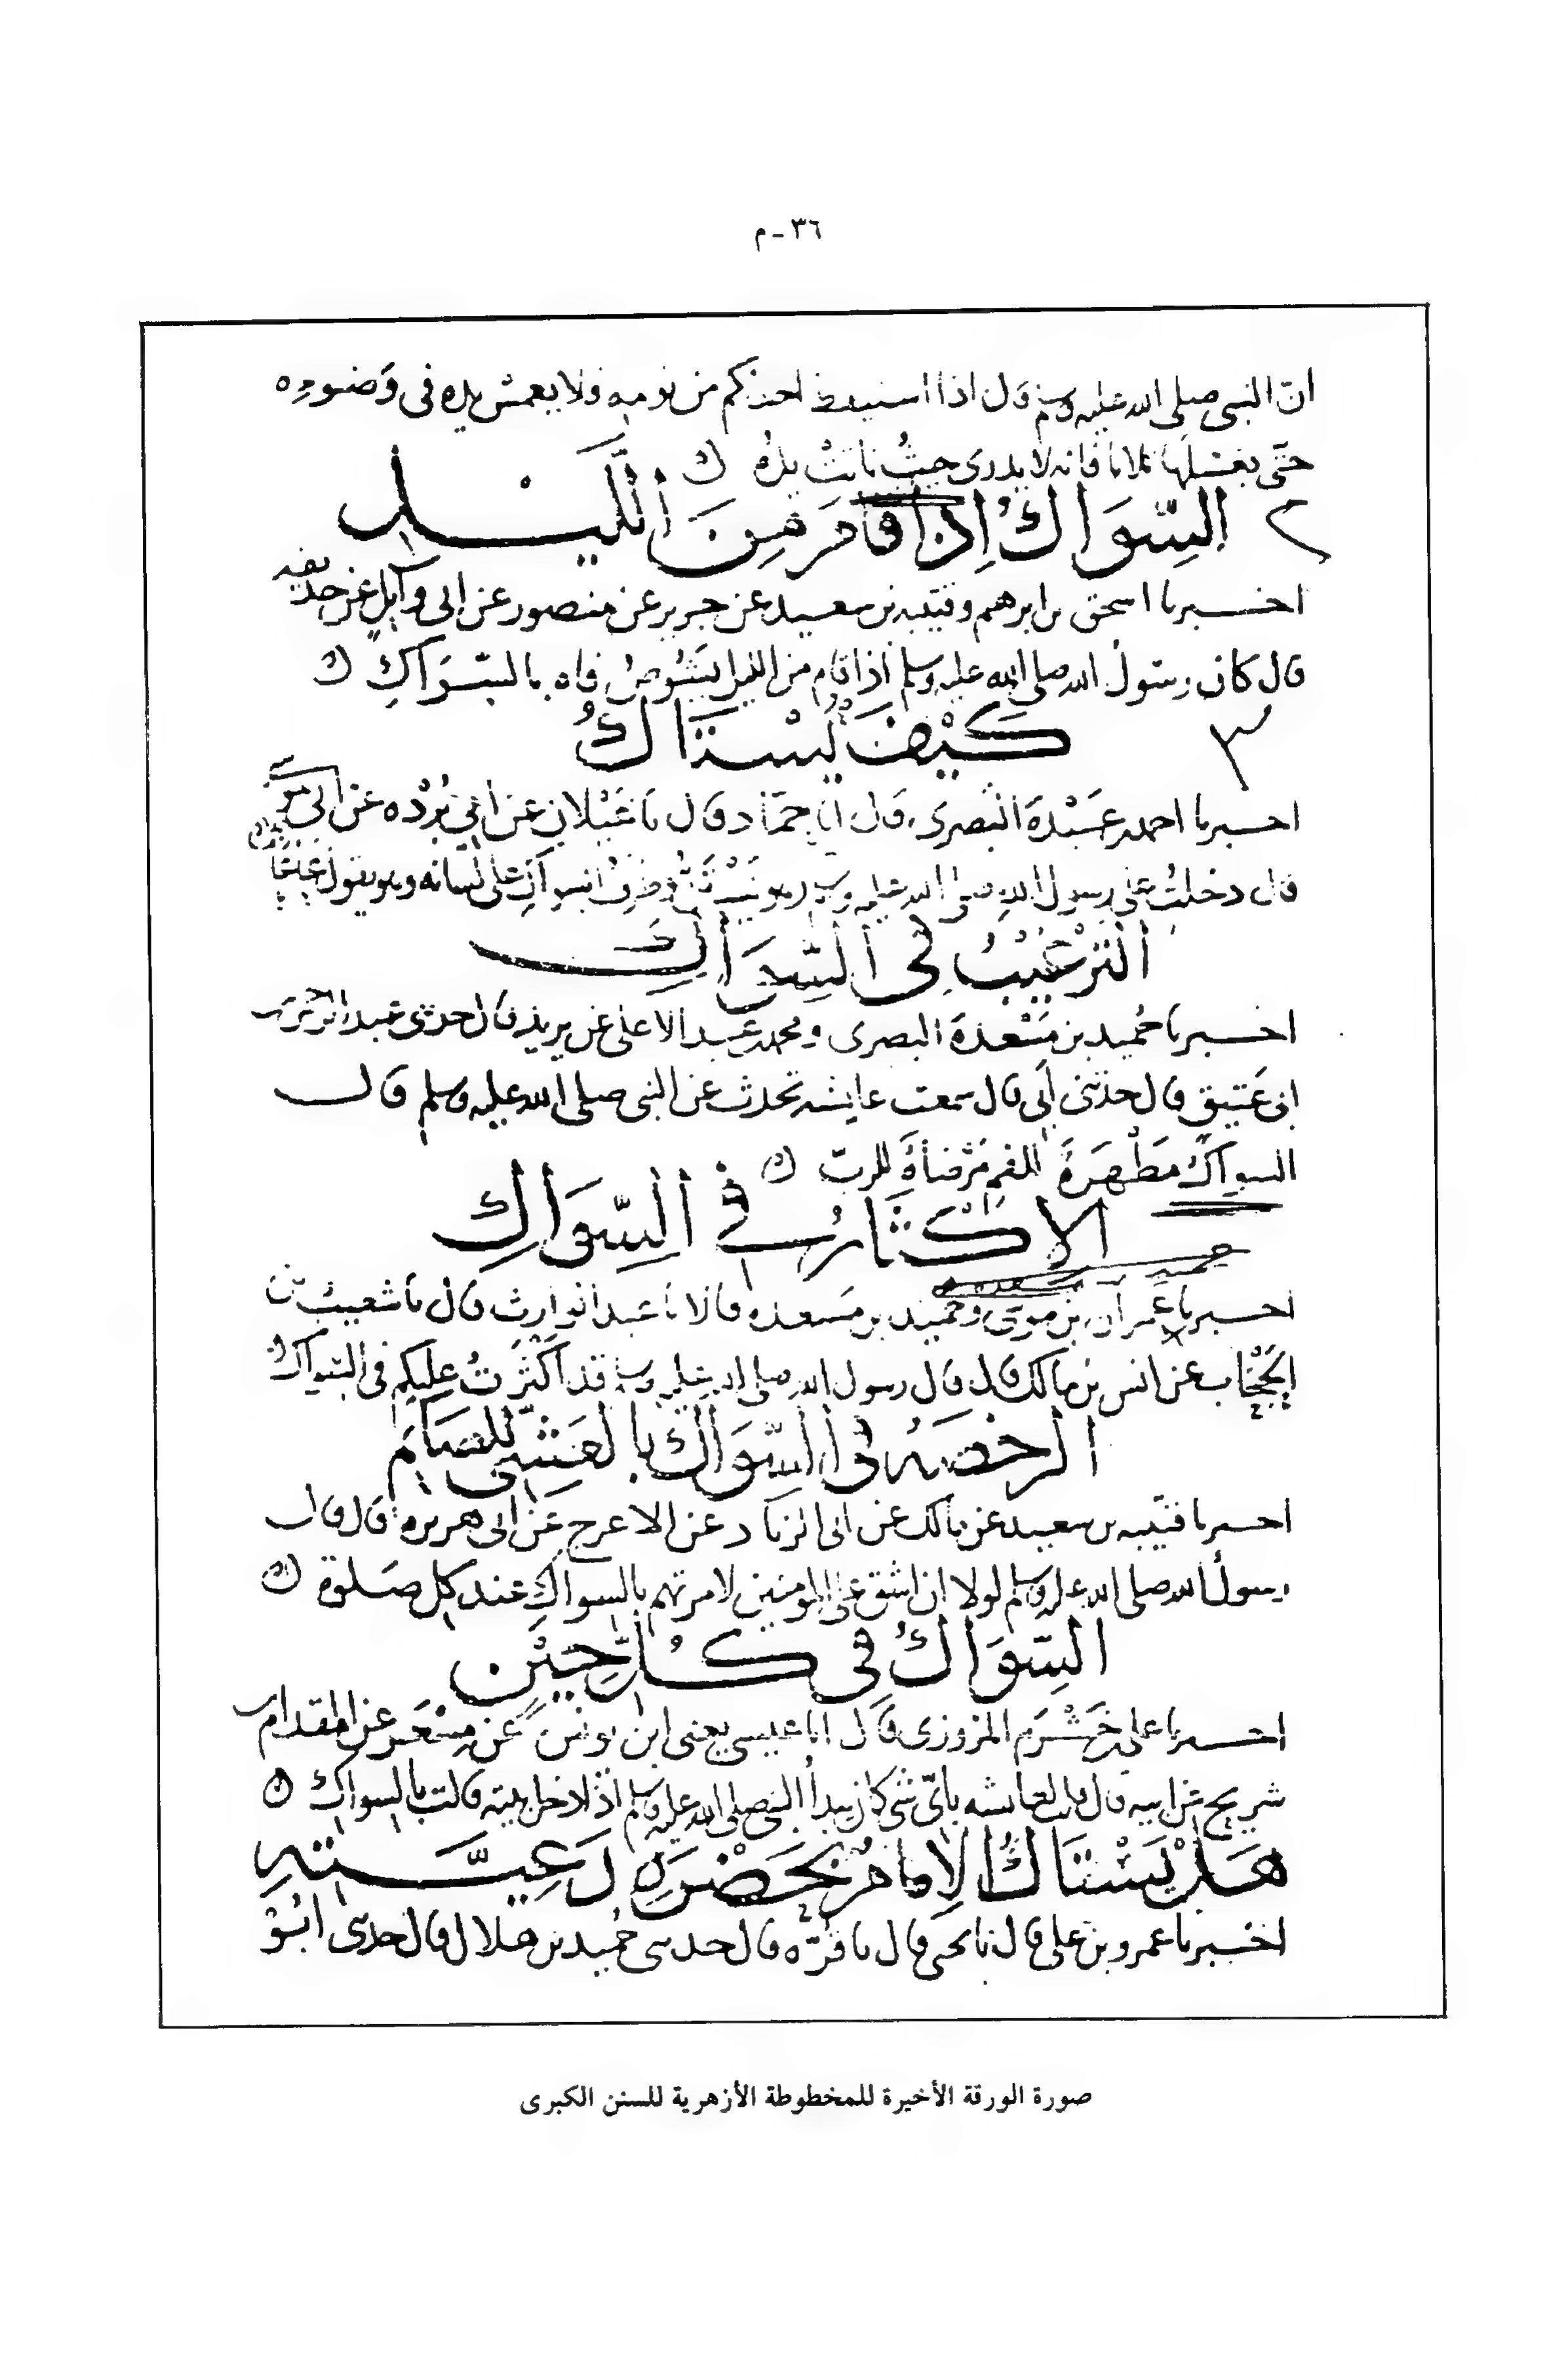 ٣٦ - م
ان النبي صلى الله عليه وسلم قال اذا استيقظ احدكم من نومه فلا يغمس يده في وضوءه
حتى يغسلها ثلاثا فانه لا يدرى حيث باتت يده
٢ السِّوَاكُ اِذَا قَامَ مِنَ اللَّيْلِ
اخبرنا اسحق بن ابرهيم وقتيبه بن سعيد عن جرير عن منصور عن ابى وايل عن حذيفه
قال كان رسول الله صلى الله عليه وسلم اذا قام من الليل يَشُوصُ فاه بالسِّوَاكِ
٣ كَيْفَ يَسْتَاكُ
اخبرنا احمد بن عَبْدَةَ البصرى قال انا حمّاد قال نا غَيْلان عن ابى بُرْده عن ابى موسى
قال دخلت على رسول الله صلى الله عليه وسلم وهو يستن وطرف السواك على لسانه وهو يقول
الترغيبُ في السِّوَاكِ
اخبرنا حُميد بن مَسْعَدَةَ البصرى ومحمد بن عبد الاعلى عن يزيد قال حدثنى عبد الرحمن
ابن عَتيق قال حدثنى أبى قال سمعت عايشه تحدث عن النبى صلى الله عليه وسلم قال
السواكُ مَطْهَرَةٌ للفم مَرْضاةٌ للربّ
الاِكْثَارُ في السِّوَاكِ
حميد بن مسعده
اخبرنا عمران بن موسى وحُميد بن مَسعده قالا نا عبد الوارث قال نا شعيب بن
الحَبْحَاب عن انس بن مالك قال قال رسول الله صلى الله عليه وسلم قد اكْثَرْتُ عليكم في السِّواك
الرخصه في السِّوَاكِ بالعَشِيّ للصَّايم
اخبرنا قتيبه بن سعيد عن مالك عن ابى الزناد عن الاعرج عن ابى هريره قال قال
رسول الله صلى الله عليه وسلم لولا ان اشق على المومنين لامرتهم بالسواكِ عند كل صَلوة
السِّوَاكُ فى كُلِّ حِيْنٍ
اخبرنا على بن خَشْرَم المروزى قال انا عيسى يعنى ابن يونس عن مِسْعَر عن المقدام بن
شريح عن ابيه قال قلت لعايشه بأىّ شى كان يبدأ النبى صلى الله عليه وسلم اذا دخل بيته قالت بالسواك
هَلْ يَسْتَاكُ الاِمَامُ بحَضْرَةِ رَعِيَّتِهِ
اخبرنا عمرو بن على قال نا يحيى قال نا قُرّه قال حدثنى حُميد بن هلال قال حدثنى ابُوْ
صورة الورقة الأخيرة للمخطوطة الأزهرية للسنن الكبرى